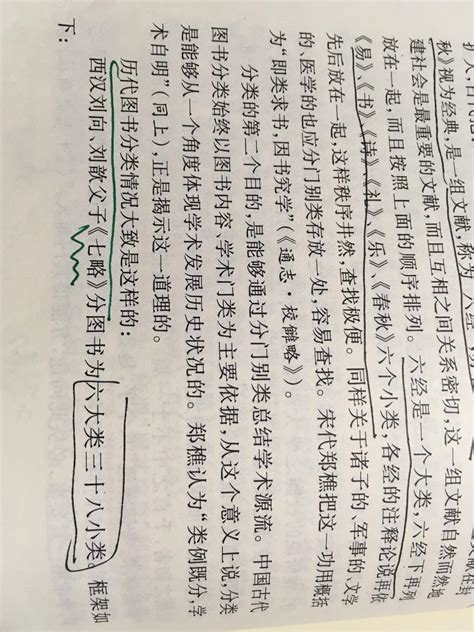 秋》视为经典,是一组文献,称为
建社会是最重要的文献,而且互相之间关系密切,这一组文献自然而然地
放在一起,而且按照上面的顺序排列。六经是一个大类,六经下再列
《易》、《书》、《诗》、《礼》、《乐》、《春秋》六个小类,各经的注释论说再依
先后放在一起,这样秩序井然,查找极便。同样关于诸子的、军事的、文学
的、医学的也应分门别类存放一处,容易查找。宋代郑樵把这一功用概括
为“即类求书,因书究学”(《通志·校雠略》)。
分类的第二个目的,是能够通过分门别类总结学术源流。中国古代
图书分类始终以图书内容、学术门类为主要依据,从这个意义上说,分类
是能够从一个角度体现学术发展历史状况的。郑樵认为“类例既分,学
术自明”(同上),正是揭示这一道理的。
历代图书分类情况大致是这样的:
西汉刘向、刘歆父子《七略》分图书为六大类三十八小类。框架如
下: